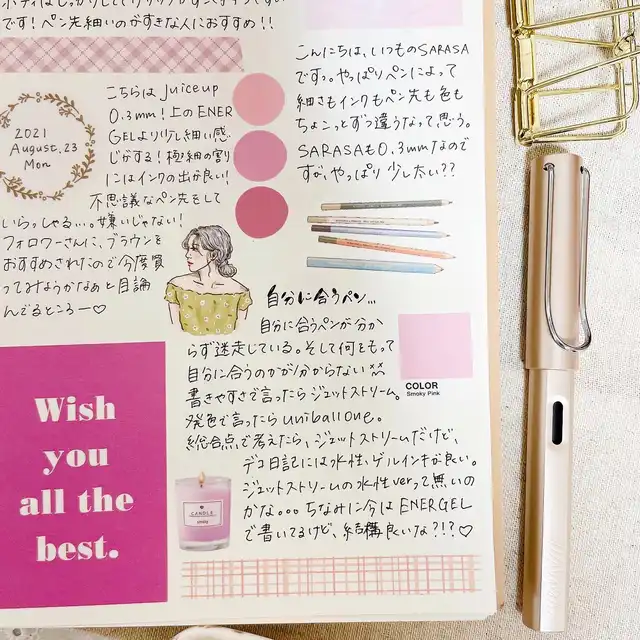 ボディはしっかりしててグリップがすごく
です!ペン先細いのがすきな人におすすめ!!
2021
August, 23
Mon
こちらは Juiceup
0.3mm!上の ENER
GELより少し細い感
じがする!極細の割り
にはインクの出が良い!
不思議なペン先をして
いらっしゃる...。嫌いじゃない!
フォロワーさんに、ブラウンを
おすすめされたので今度買
ってみようかなぁと目論
んでるところー♡
Wish
you
all the
best.
こんにちは、いつものSARASA
です。やっぱりペンによって
細さもインクもペン先も色も
ちょこっとずつ違うなって思う。
SARASAも0.3mmなので
すが、やっぱり 少し太い??
自分に合うペン...
自分に合うペンが分か
らず迷走している。そして何をもって
自分に合うのかが分からない
書きやすさで言ったらジェットストリーム。
発色で言ったらuniball one。
総合点で考えたら、ジェットストリームだけど、
デコ日記には水性、ゲルインキが良い。
ジェットストリームの水性verって無いの
かな。。。ちなみに今はENERGEL
で書いてるけど、結構良いな?!?♡
COLOR
Smoky Pink
CANDLE
LAMY